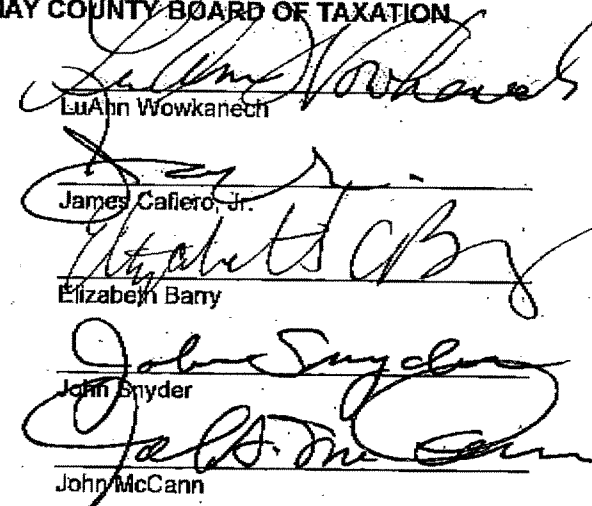 MAY COUNTY BOARD OF TAXATION
LuAnn Wowkanech
LuAnn Wowkanech
James Cafiero, Jr.
Elizabeth C Barry
Elizabeth Barry
John Snyder
John Snyder
John A. McCann
John McCann